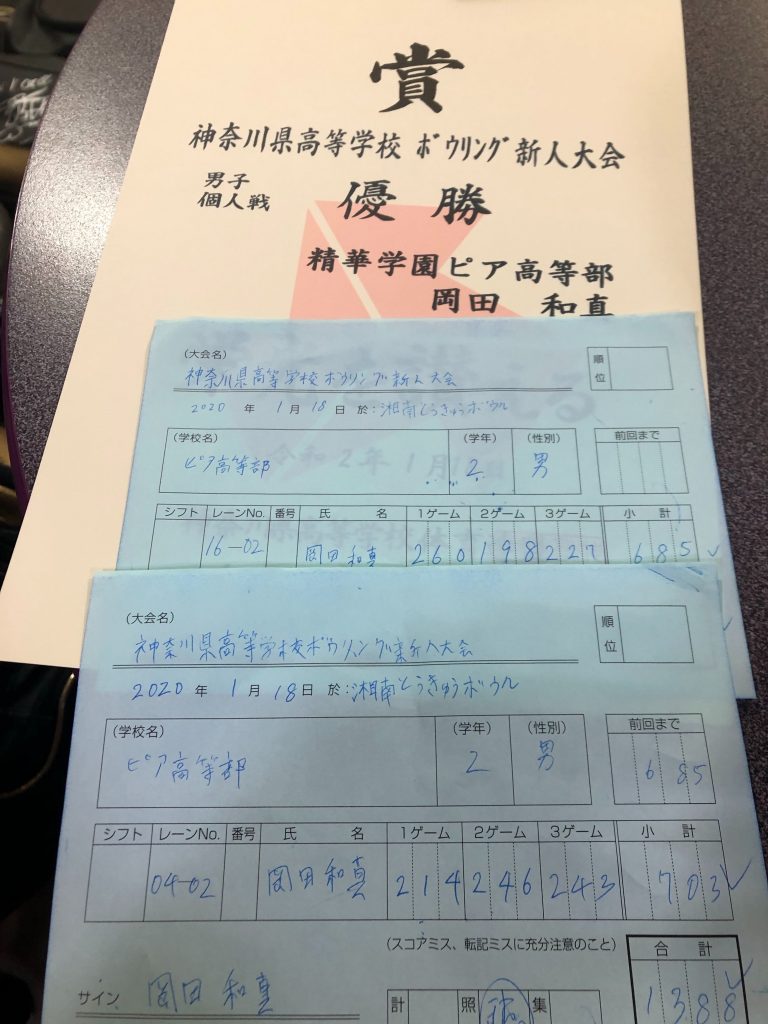 賞
神奈川県高等学校 ボウリング 新人大会
男子
個人戦 優勝
精華学園ピア高等部
岡田 和真
(大会名)
神奈川県高等学校ボウリング新人大会
順位
2020 年 1 月 18 日 於:湘南とうきゅうボウル
(学校名) (学年) (性別) 前回まで
ピア高等部 2 男
令和2年1月
シフト レーンNo. 番号 氏 名 1ゲーム 2ゲーム 3ゲーム 小 計
16-02 岡田和真 260 198 227 685
(大会名)
神奈川県高等学校ボウリング新人大会
順位
2020 年 1 月 18 日 於:湘南とうきゅうボウル
(学校名) (学年) (性別) 前回まで
ピア高等部 2 男 685
シフト レーンNo. 番号 氏 名 1ゲーム 2ゲーム 3ゲーム 小 計
04-02 岡田和真 214 246 243 703
(スコアミス、転記ミスに充分注意のこと) 合 計
サイン 岡田 和真 計 照 集 1388